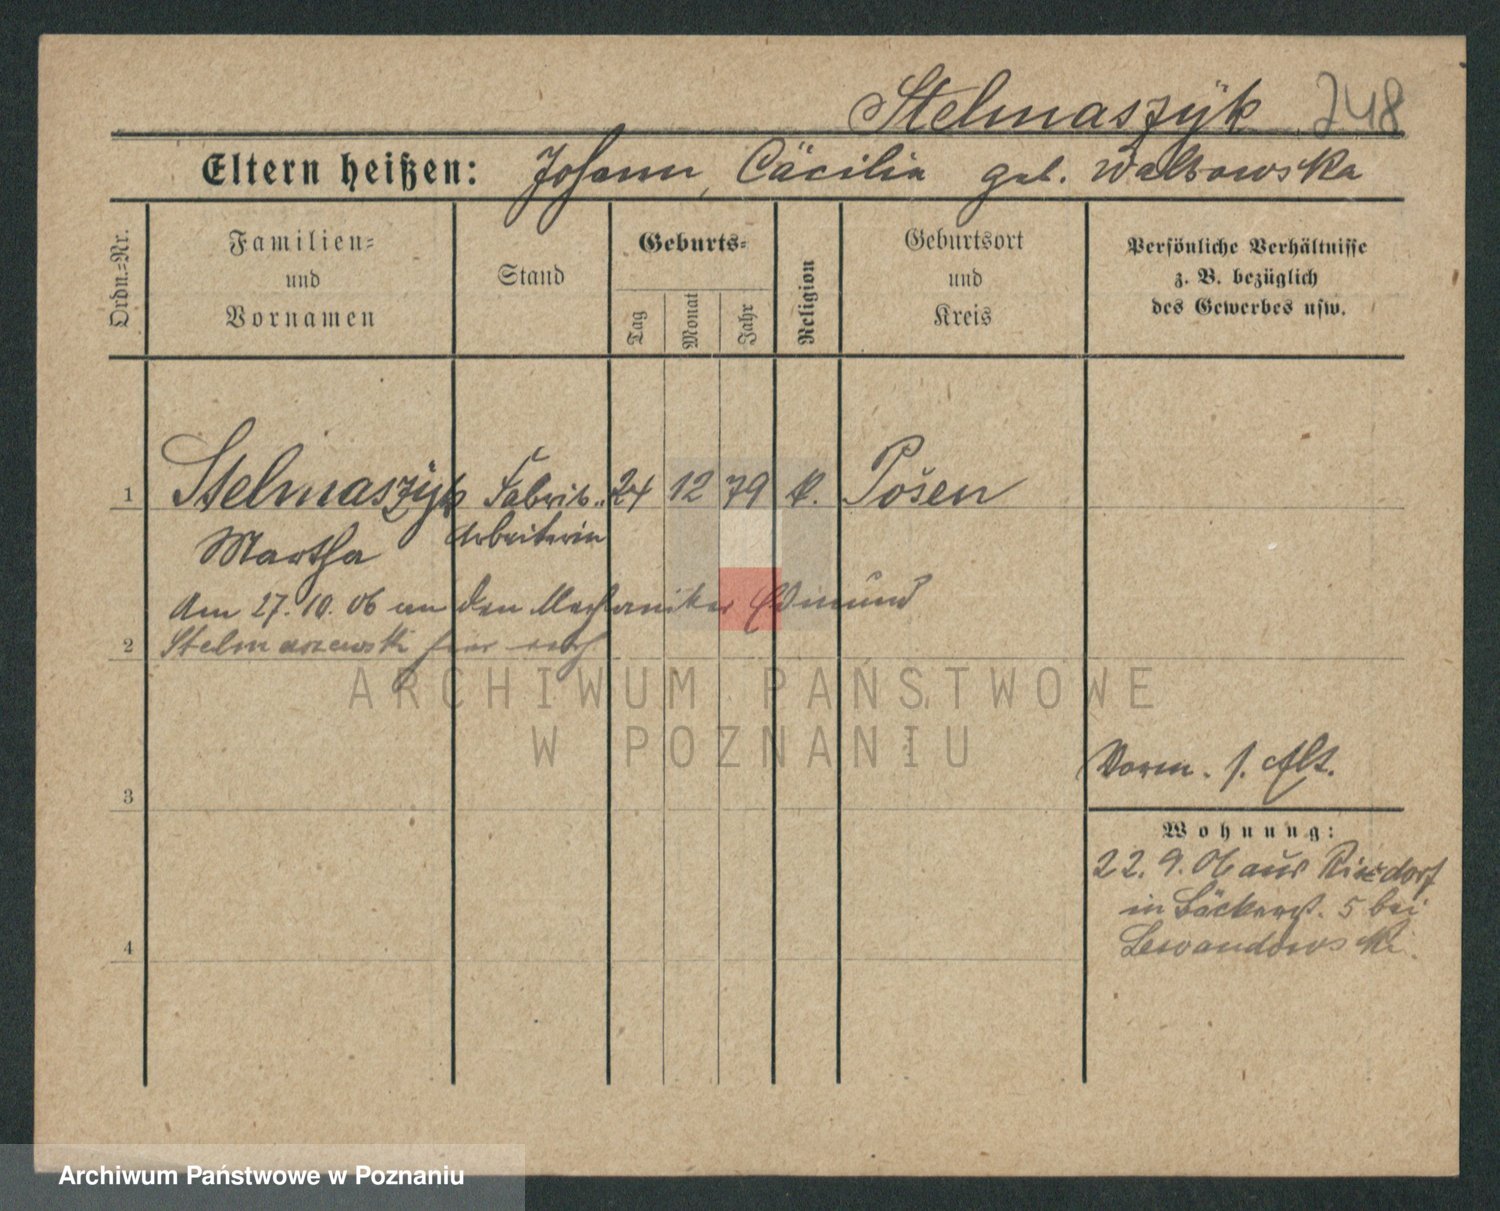 Stelmaszÿk 748
Eltern heißen: Johann, Cäcilia geb. Walkowska
Ordn.=Nr.
Familien=
und
Vornamen
Stand
Geburts=
Tag
Monat
Jahr
Religion
Geburtsort
und
Kreis
Persönliche Verhältnisse
z. B. bezüglich
des Gewerbes usw.
1 Stelmaszÿk Fabrik= 24 12 79 k. Posen
Martha Arbeiterin
Am 27.10.06 an den Mechaniker Edmund
2 Stelmaszewski hier verh.
3
Vorm. s. Akt.
Wohnung:
22.9.06 aus Rixdorf
in Bäckerst. 5 bei
Lewandowski.
4
ARCHIWUM PAŃSTWOWE
W POZNANIU
Archiwum Państwowe w Poznaniu